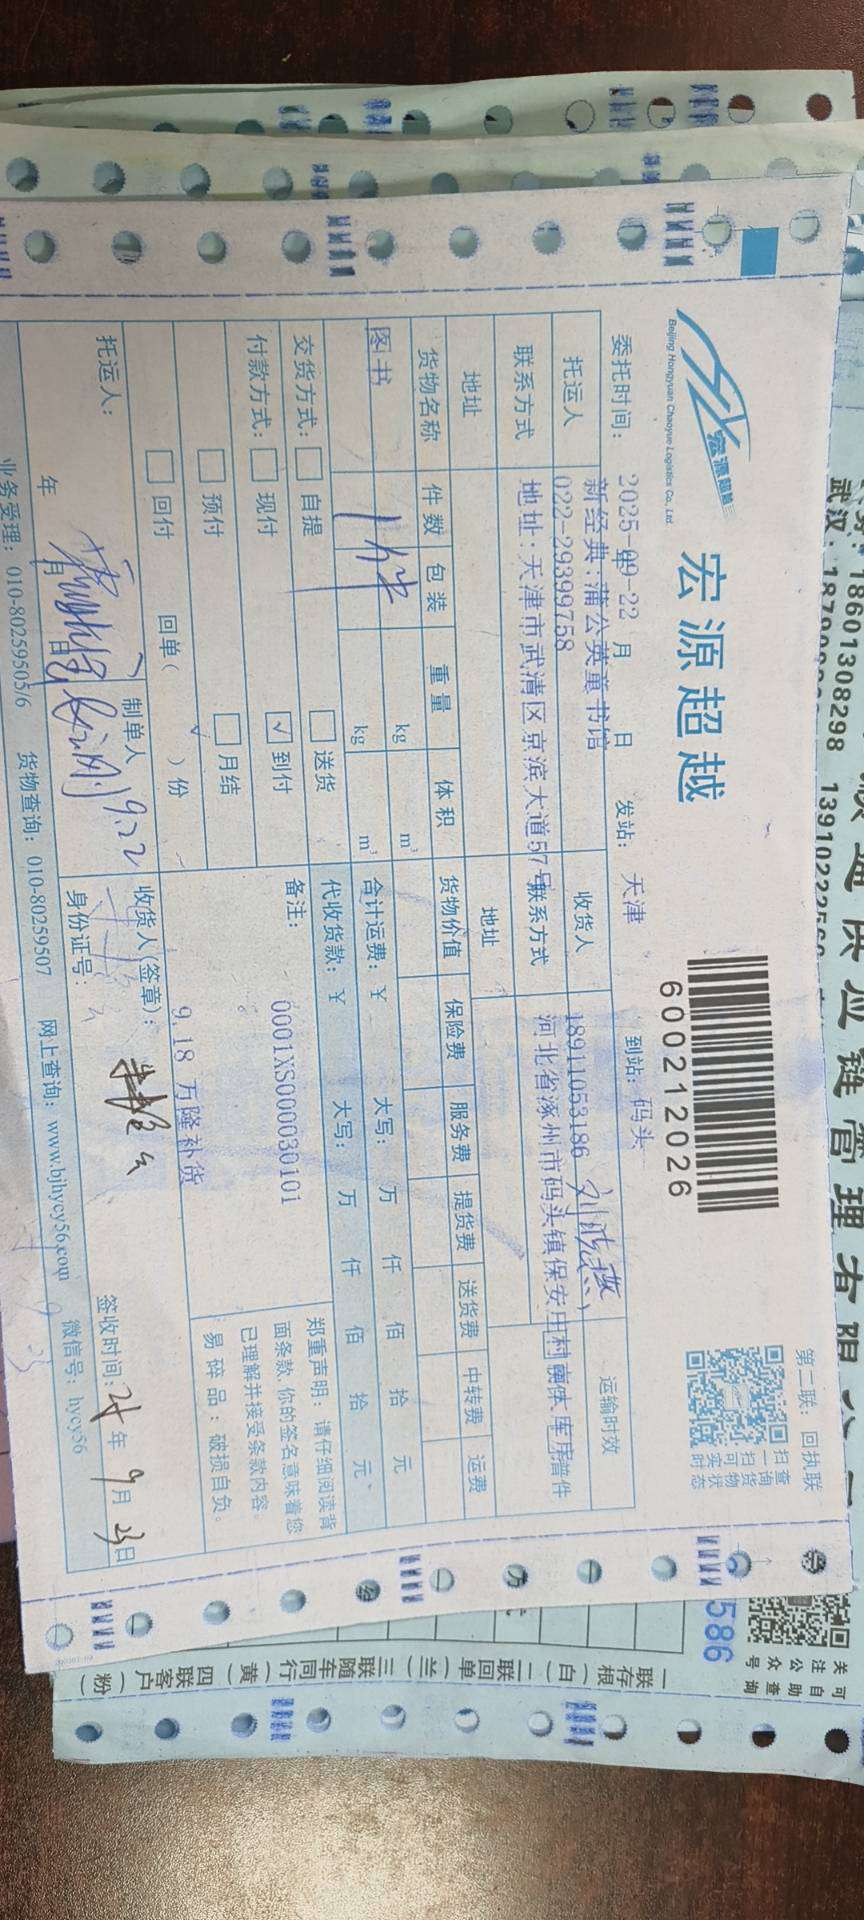 宏源超越
Beijing Hongyuan Chaoyue Logistics Co., Ltd.
宏源超越
600212026
第二联：回执联
扫一扫可实时
查询货物状态
委托时间：2025-09-22 年 月 日 发站：天津 到站：码头
托运人 新经典：蒲公英童书馆 收货人 运输时效
联系方式 022-29399758 联系方式 18911053186 刘晓燕
地址 地址：天津市武清区京滨大道57号 地址 河北省涿州市码头镇保安庄村 普件
货物名称 件数 包装 重量 体积 货物价值 保险费 服务费 提货费 送货费 中转费 运费
图书 1件 kg m³
kg m³ 合计运费：¥ 大写： 万 仟 佰 拾 元
交货方式： 自提 送货 代收货款：¥ 大写： 万 仟 佰 拾 元
付款方式： 现付 ✓到付 备注： 0001XS000030101
预付 月结
回付 回单（ ）份 9.18 万隆补货
郑重声明：请仔细阅读背
面条款，你的签名意味着您
已理解并接受条款内容。
易碎品：破损自负。
托运人： 制单人 9.22 收货人(签章)：
年 月 日 身份证号： 签收时间：25年9月23日
业务受理：010-80259505/6 货物查询：010-80259507 网上查询：www.bjhycy56.com 微信号：hycy56
供应链管理有限公司
18601308298
武汉： 13910222
586
关注公众号
可自助查询
一联存根（白）二联回单（兰）三联随车同行（黄）四联客户（粉）